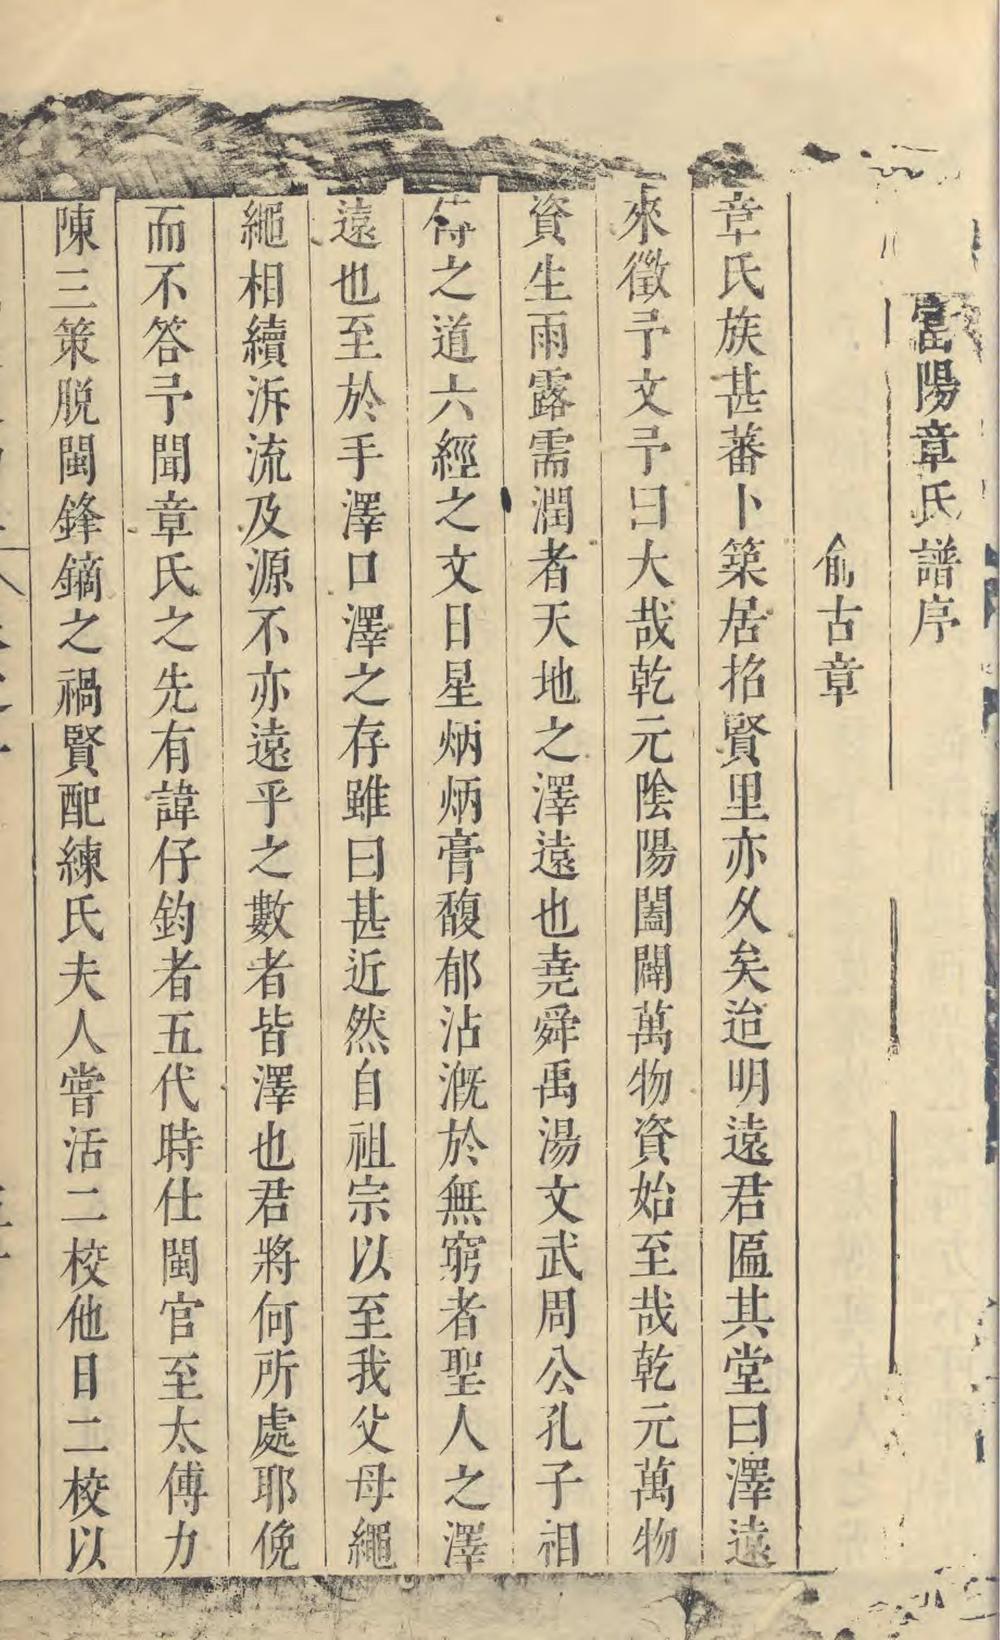 富陽章氏譜序
俞古章
章氏族甚蕃卜築居招賢里亦久矣迨明遠君匾其堂曰澤遠
來徵予文予曰大哉乾元陰陽闔闢萬物資始至哉乾元萬物
資生雨露需潤者天地之澤遠也堯舜禹湯文武周公孔子相
待之道六經之文日星炳炳膏馥郁沾漑於無窮者聖人之澤
遠也至於手澤口澤之存雖曰甚近然自祖宗以至我父母繩
繩相續泝流及源不亦遠乎之數者皆澤也君將何所處耶俛
而不答予聞章氏之先有諱仔鈞者五代時仕閩官至太傅力
陳三策脫閩鋒鏑之禍賢配練氏夫人嘗活二校他日二校以